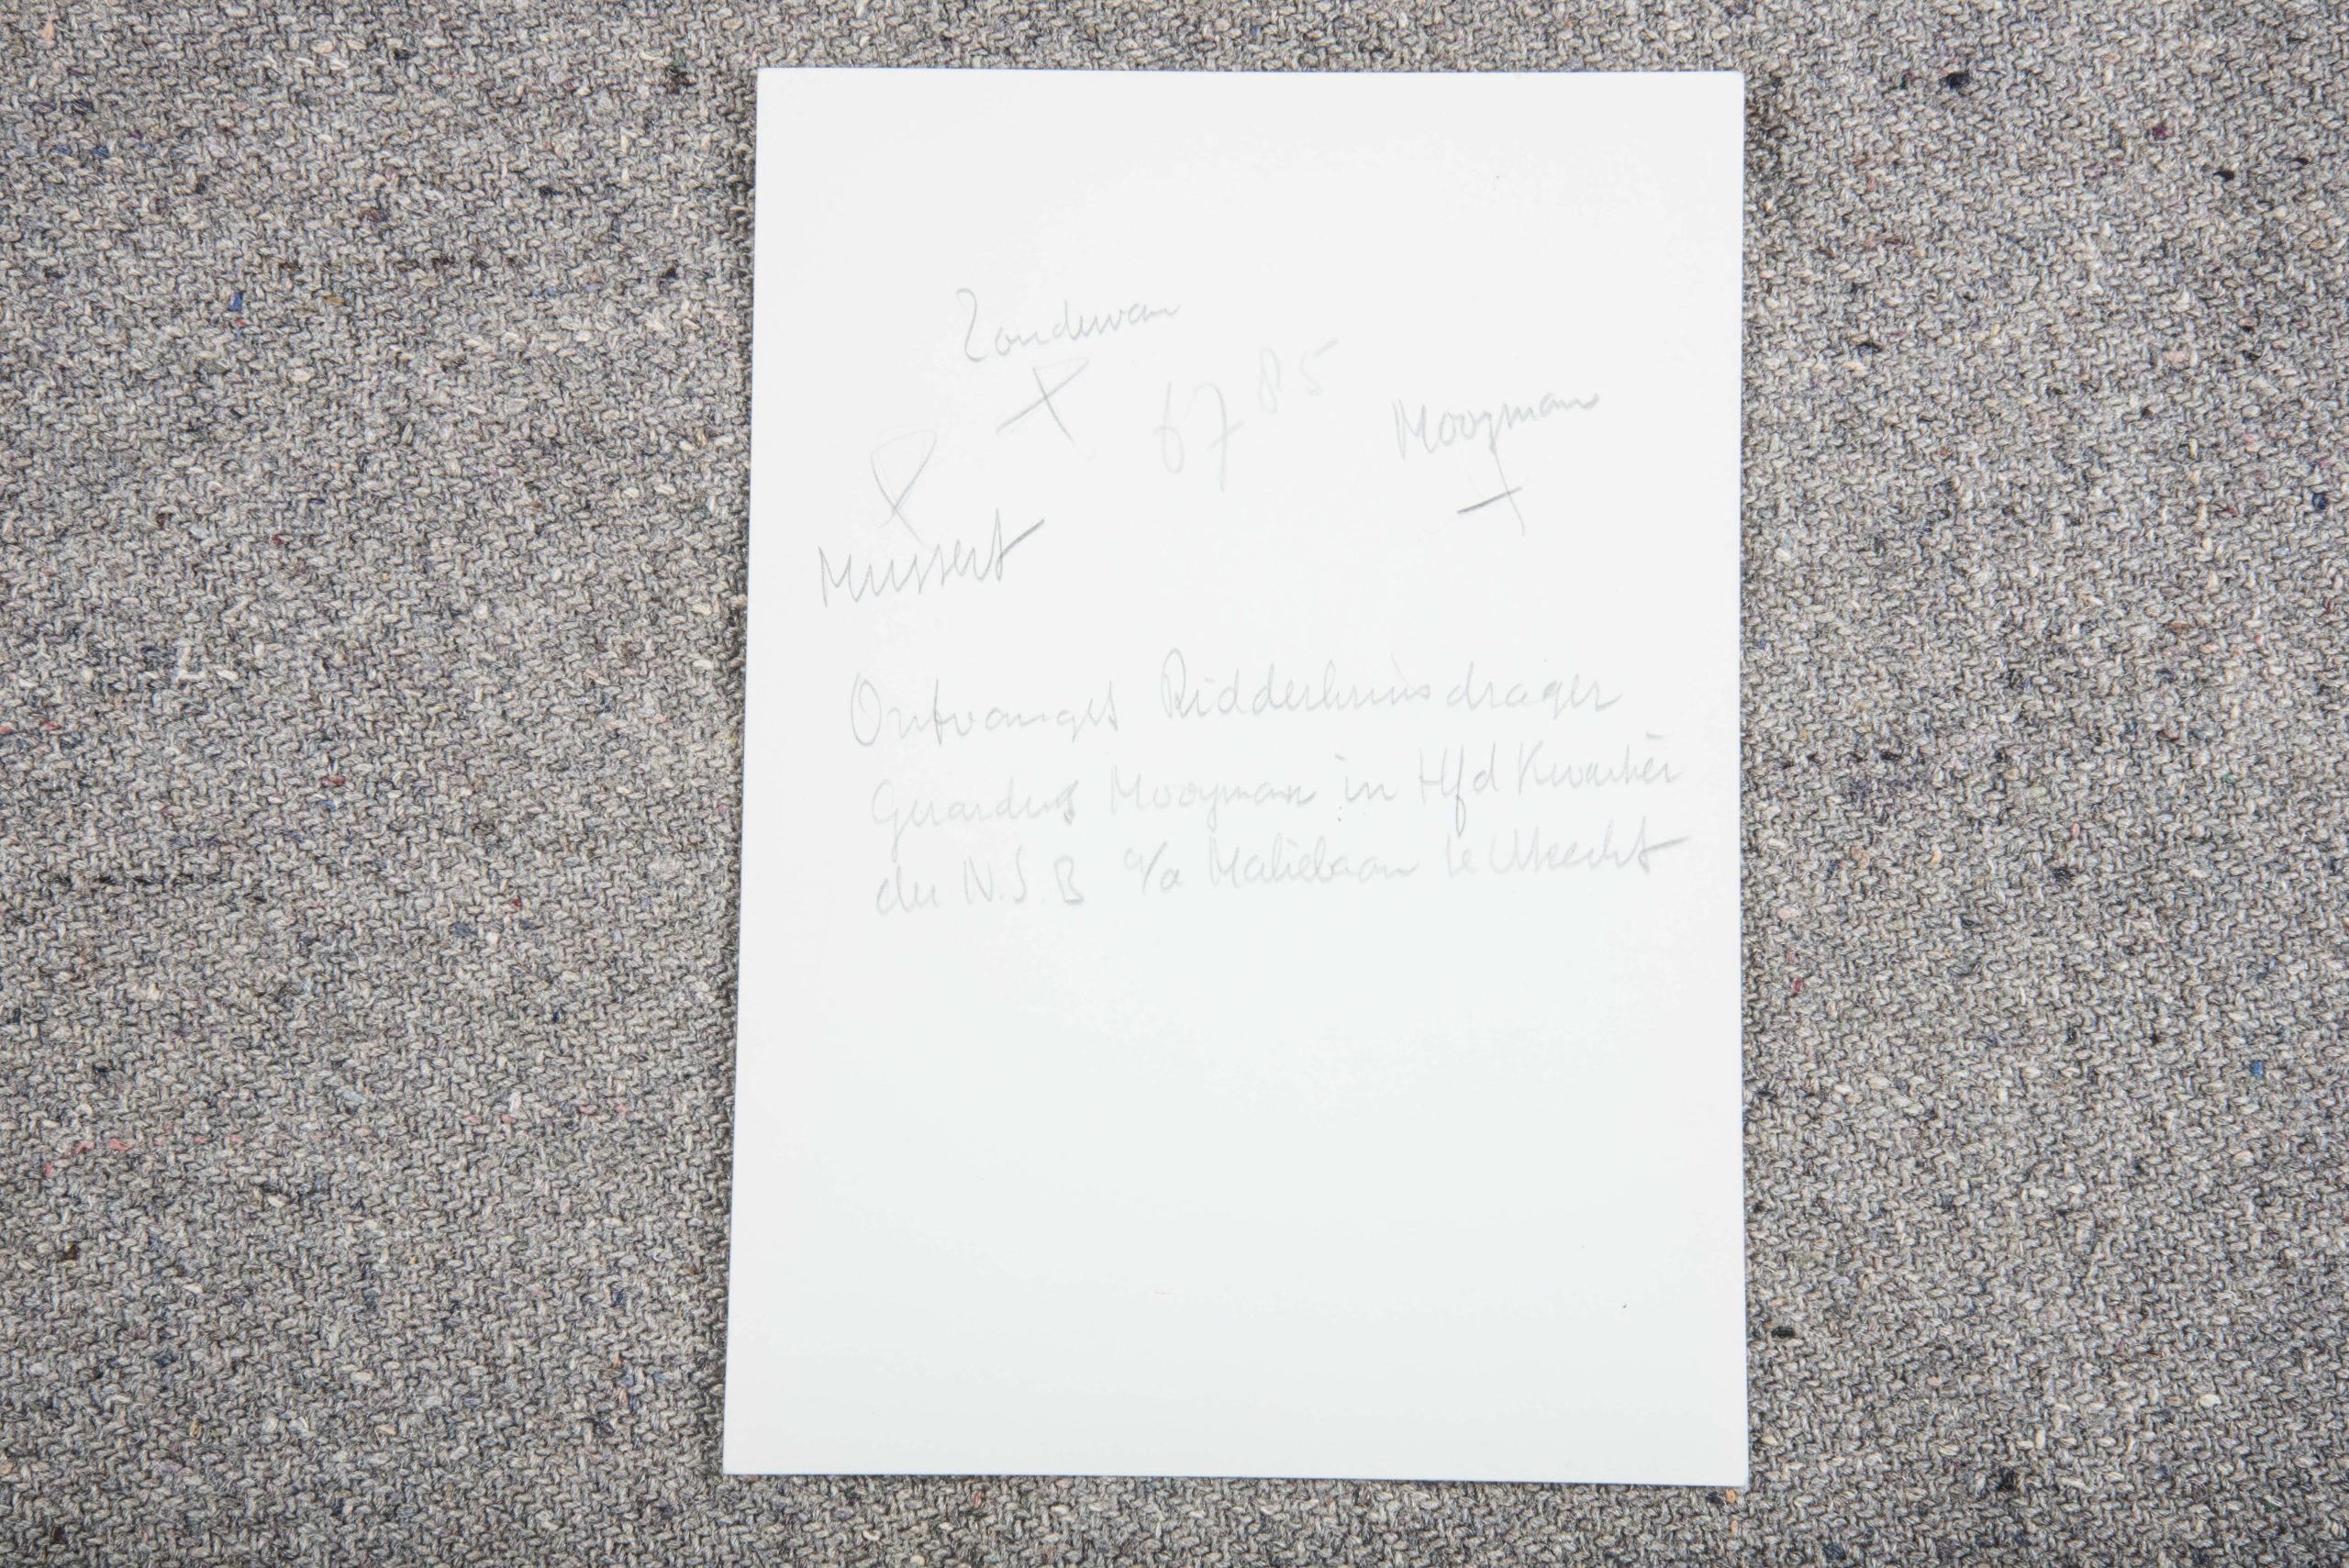 Zondervan
67 85
Mooyman
Mussert
Ontvangst Ridderkruisdrager
Gerardus Mooyman in Hfd Kwartier
der N.S.B a/d Maliebaan te Utrecht